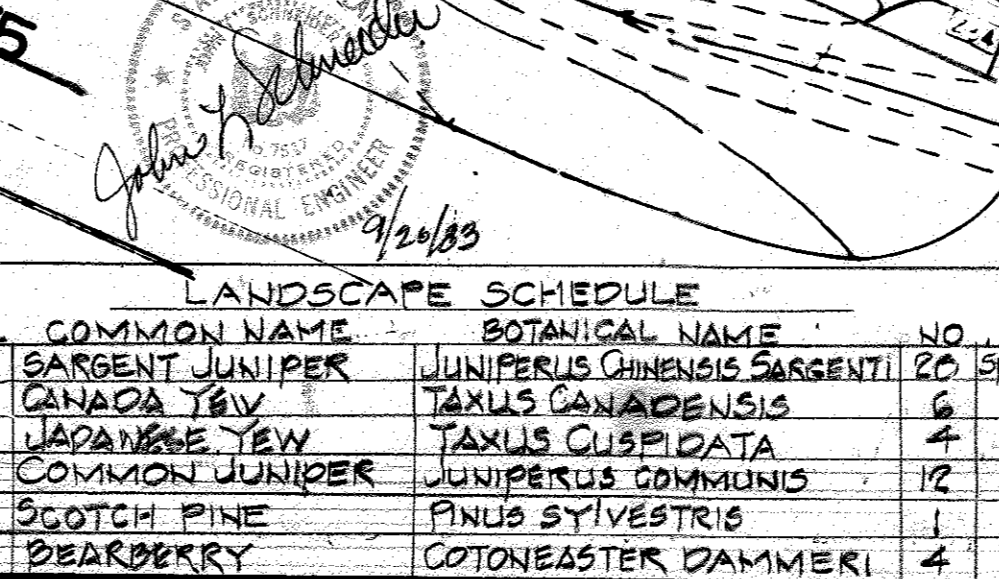 John L Schneider
REGISTERED
PROFESSIONAL ENGINEER
9/26/83
LANDSCAPE SCHEDULE
COMMON NAME BOTANICAL NAME NO.
SARGENT JUNIPER JUNIPERUS CHINENSIS SARGENTI 20
CANADA YEW TAXUS CANADENSIS 6
JAPANESE YEW TAXUS CUSPIDATA 4
COMMON JUNIPER JUNIPERUS COMMUNIS 12
SCOTCH PINE PINUS SYLVESTRIS 1
BEARBERRY COTONEASTER DAMMERI 4